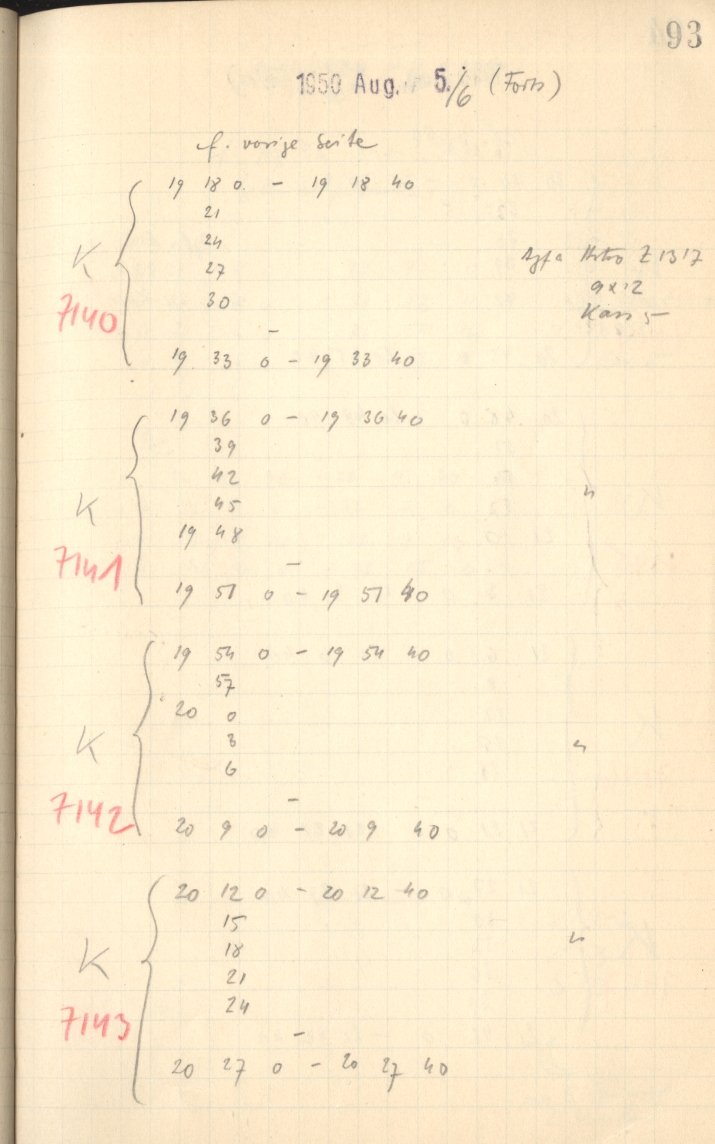 93
1950 Aug. 5./6 (Forts)
f. vorige Seite
19 18 0. - 19 18 40
21
24
27
30
-
19 33 0 - 19 33 40
K
7140
Agfa Astro Z 1317
9x12
Kass 5
19 36 0 - 19 36 40
39
42
45
19 48
-
19 51 0 - 19 51 40
K
7141
"
19 54 0 - 19 54 40
57
20 0
3
6
-
20 9 0 - 20 9 40
K
7142
"
20 12 0 - 20 12 40
15
18
21
24
-
20 27 0 - 20 27 40
K
7143
"